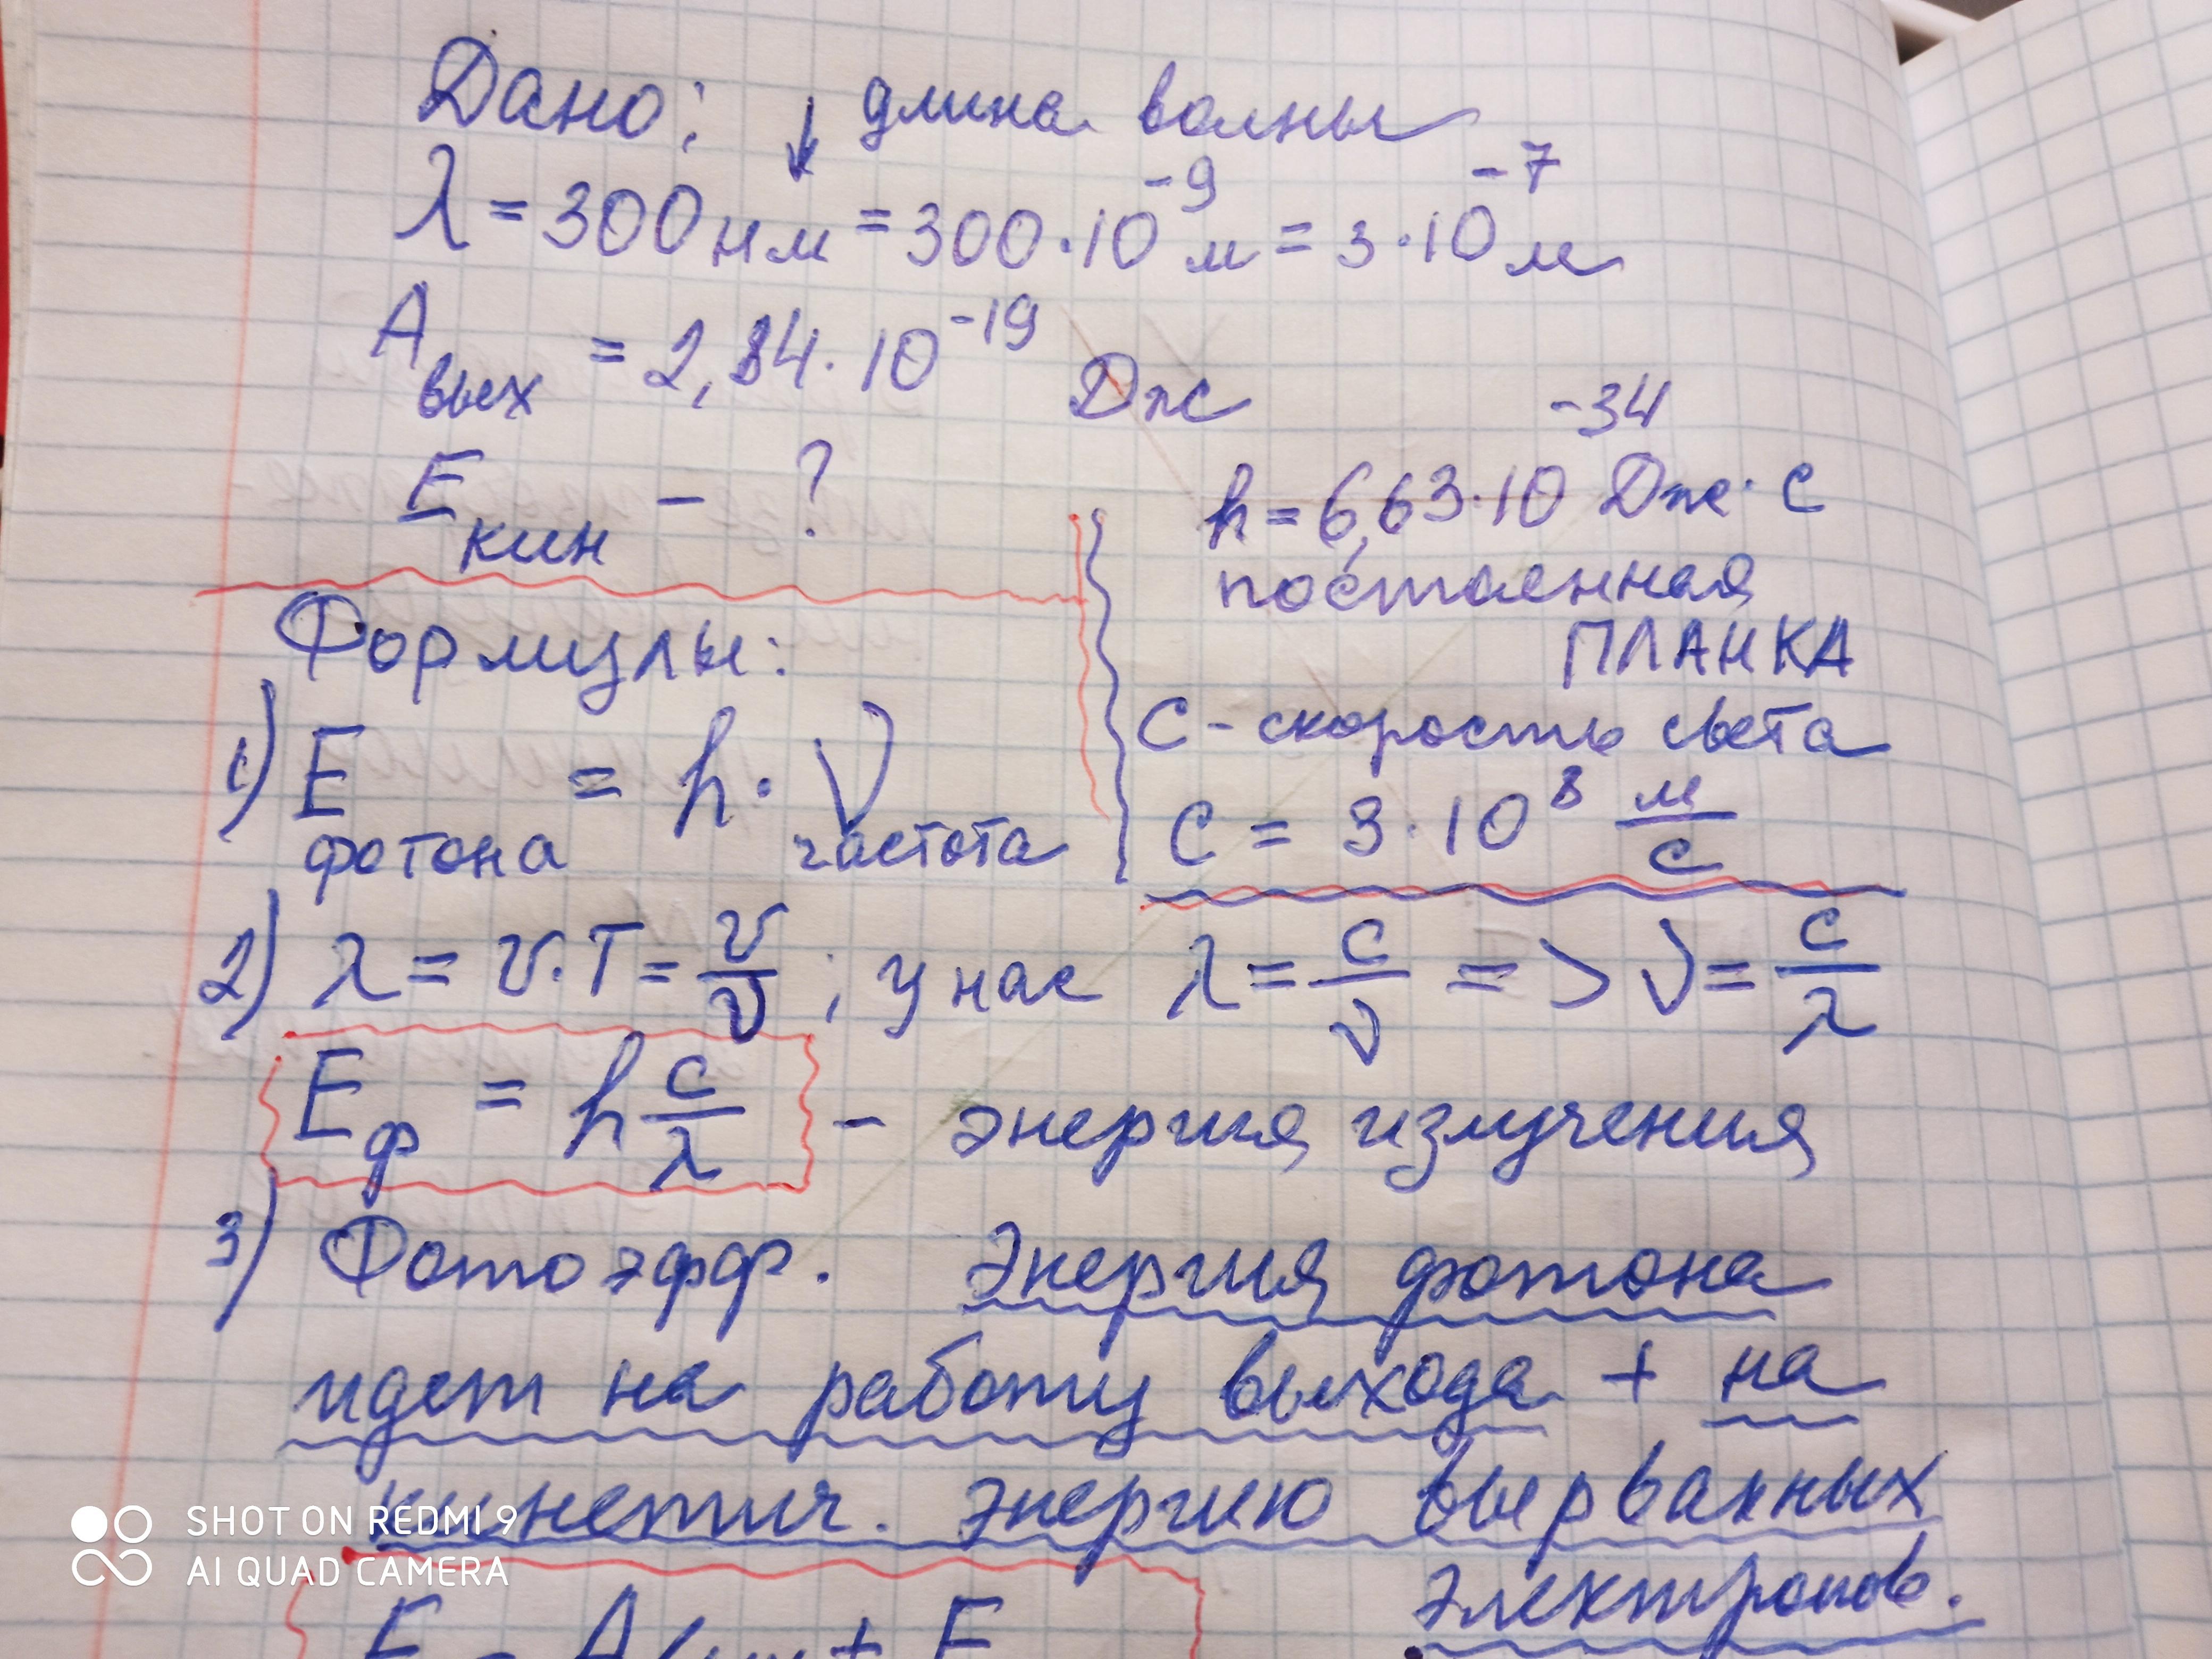 Дано: ↓ длина волны
λ = 300 нм = 300·10⁻⁹ м = 3·10⁻⁷ м
A вых = 2,84·10⁻¹⁹ Дж
E кин - ?
h = 6,63·10⁻³⁴ Дж·с
постоянная
ПЛАНКА
С - скорость света
C = 3·10⁸ м/с
Формулы:
1) E фотона = h·ν частота
2) λ = v·T = v/ν ; у нас λ = c/ν => ν = c/λ
E ф = h c/λ - энергия излучения
3) Фотоэфф. Энергия фотона
идет на работу выхода + на
кинетич. энергию вырванных
электронов.
E = A вых + E
SHOT ON REDMI 9
AI QUAD CAMERA